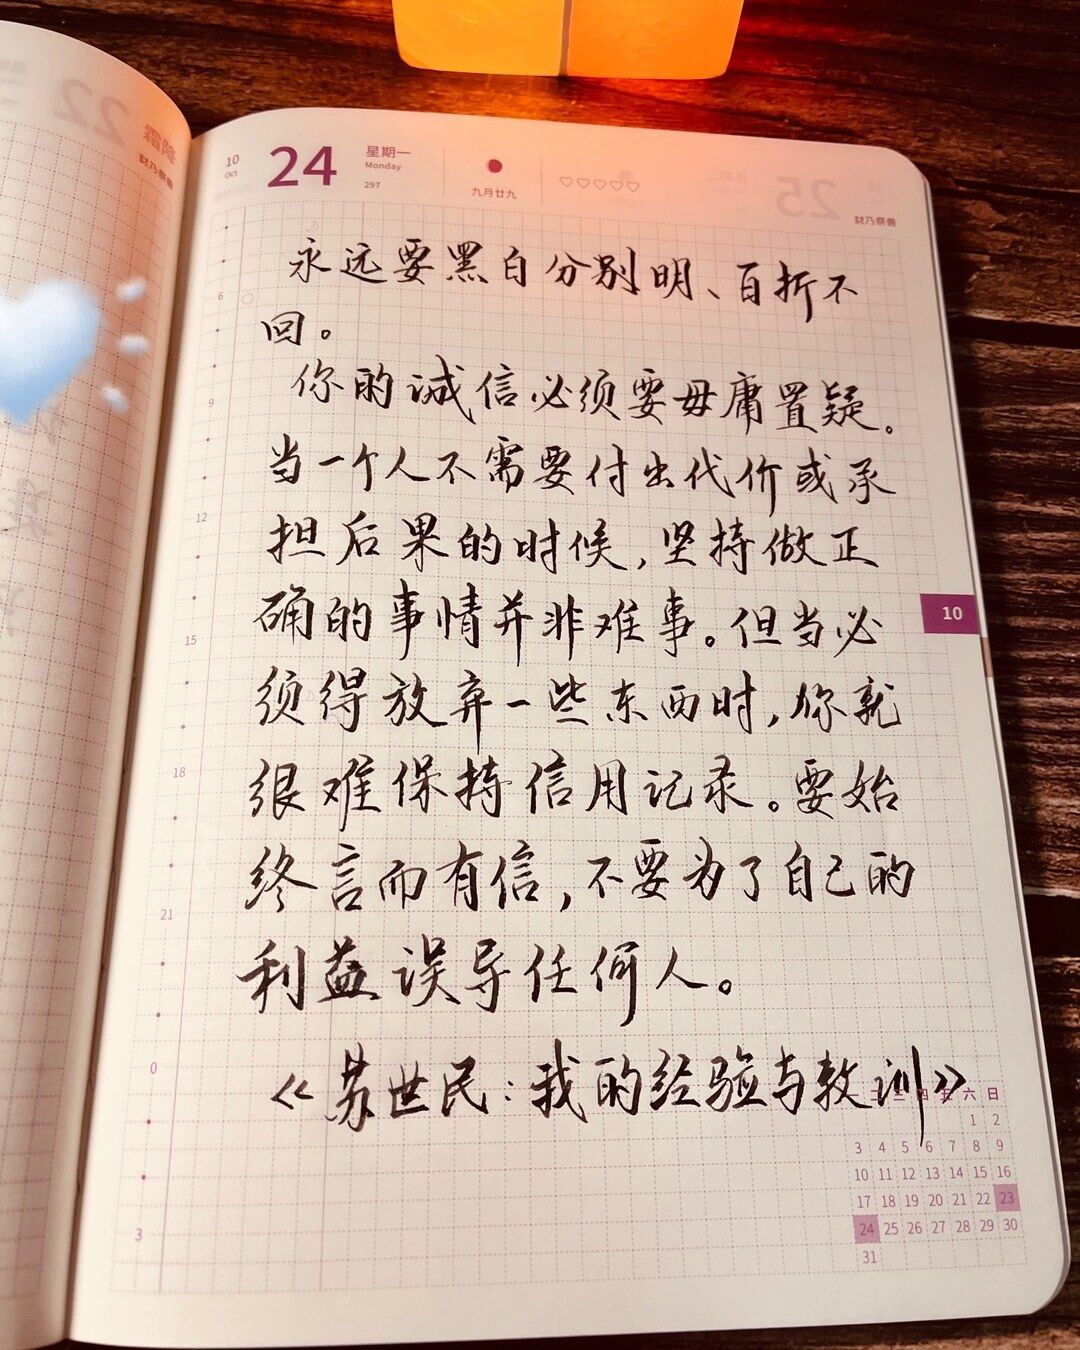 10
Oct
24
星期一
Monday
297
九月廿九
22
25
财乃祭兽
永远要黑白分别明、百折不
回。
你的诚信必须要毋庸置疑。
当一个人不需要付出代价或承
担后果的时候,坚持做正
确的事情并非难事。但当必
须得放弃一些东西时,你就
很难保持信用记录。要始
终言而有信,不要为了自己的
利益误导任何人。
《苏世民:我的经验与教训》
6
9
12
15
18
21
0
3
10
二 三 四 五 六 日
1 2
3 4 5 6 7 8 9
10 11 12 13 14 15 16
17 18 19 20 21 22 23
24 25 26 27 28 29 30
31